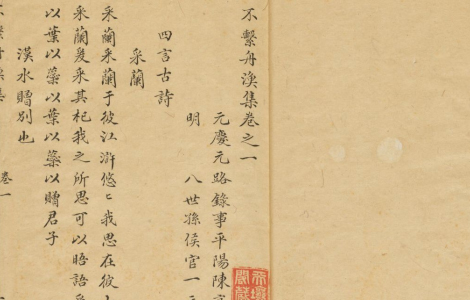 不繫舟漁集卷之一
元慶元路錄事平陽陳
明　八世孫侯官一
四言古詩
采蘭
采蘭采蘭于彼江滸悠〻我思在彼
采蘭爰采其杞我之所思可以晤語
以葉以藥以葉以藥以贈君子
漢水贈別也
卷一